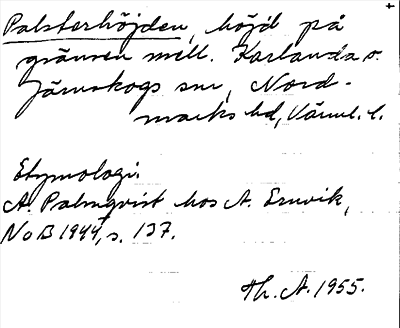 Palsterhöjden, höjd på
gränsen mell. Karlanda o.
Järnskogs snr, Nord-
marks hd, Värml. l.
Etymologi:
A. Palmqvist hos A. Ernvik,
NoB 1944, s. 137.
Th. A. 1955.